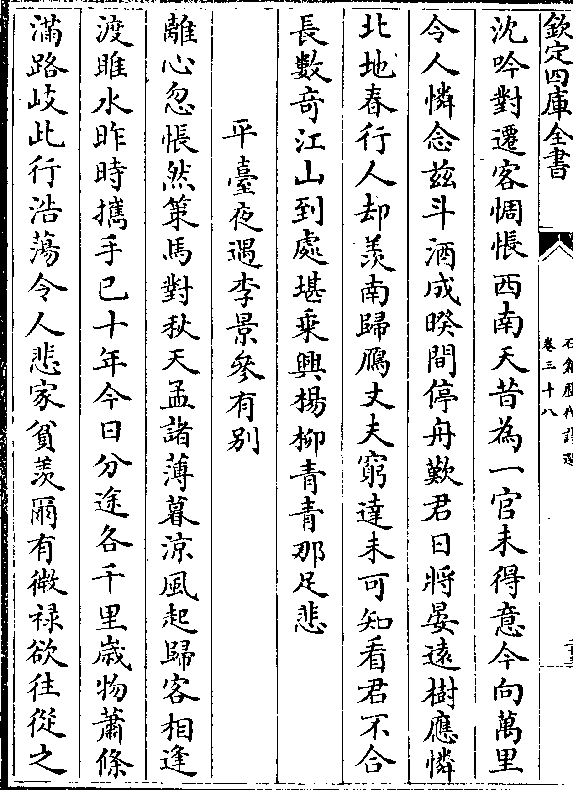 欽定四庫全書
卷三十八
沈吟對遷客惆悵西南天昔為一官未得意今向萬里
令人憐念茲斗酒成暌間停舟歎君日將晏遠樹應憐
北地春行人却羨南歸鴈丈夫窮達未可知看君不合
長數奇江山到處堪乘興楊柳青青那足悲
平臺夜遇李景參有别
離心忽悵然策馬對秋天孟諸薄暮涼風起歸客相逢
渡睢水昨時攜手已十年今日分途各千里歲物蕭條
滿路岐此行浩蕩令人悲家貧羨爾有微禄欲往從之